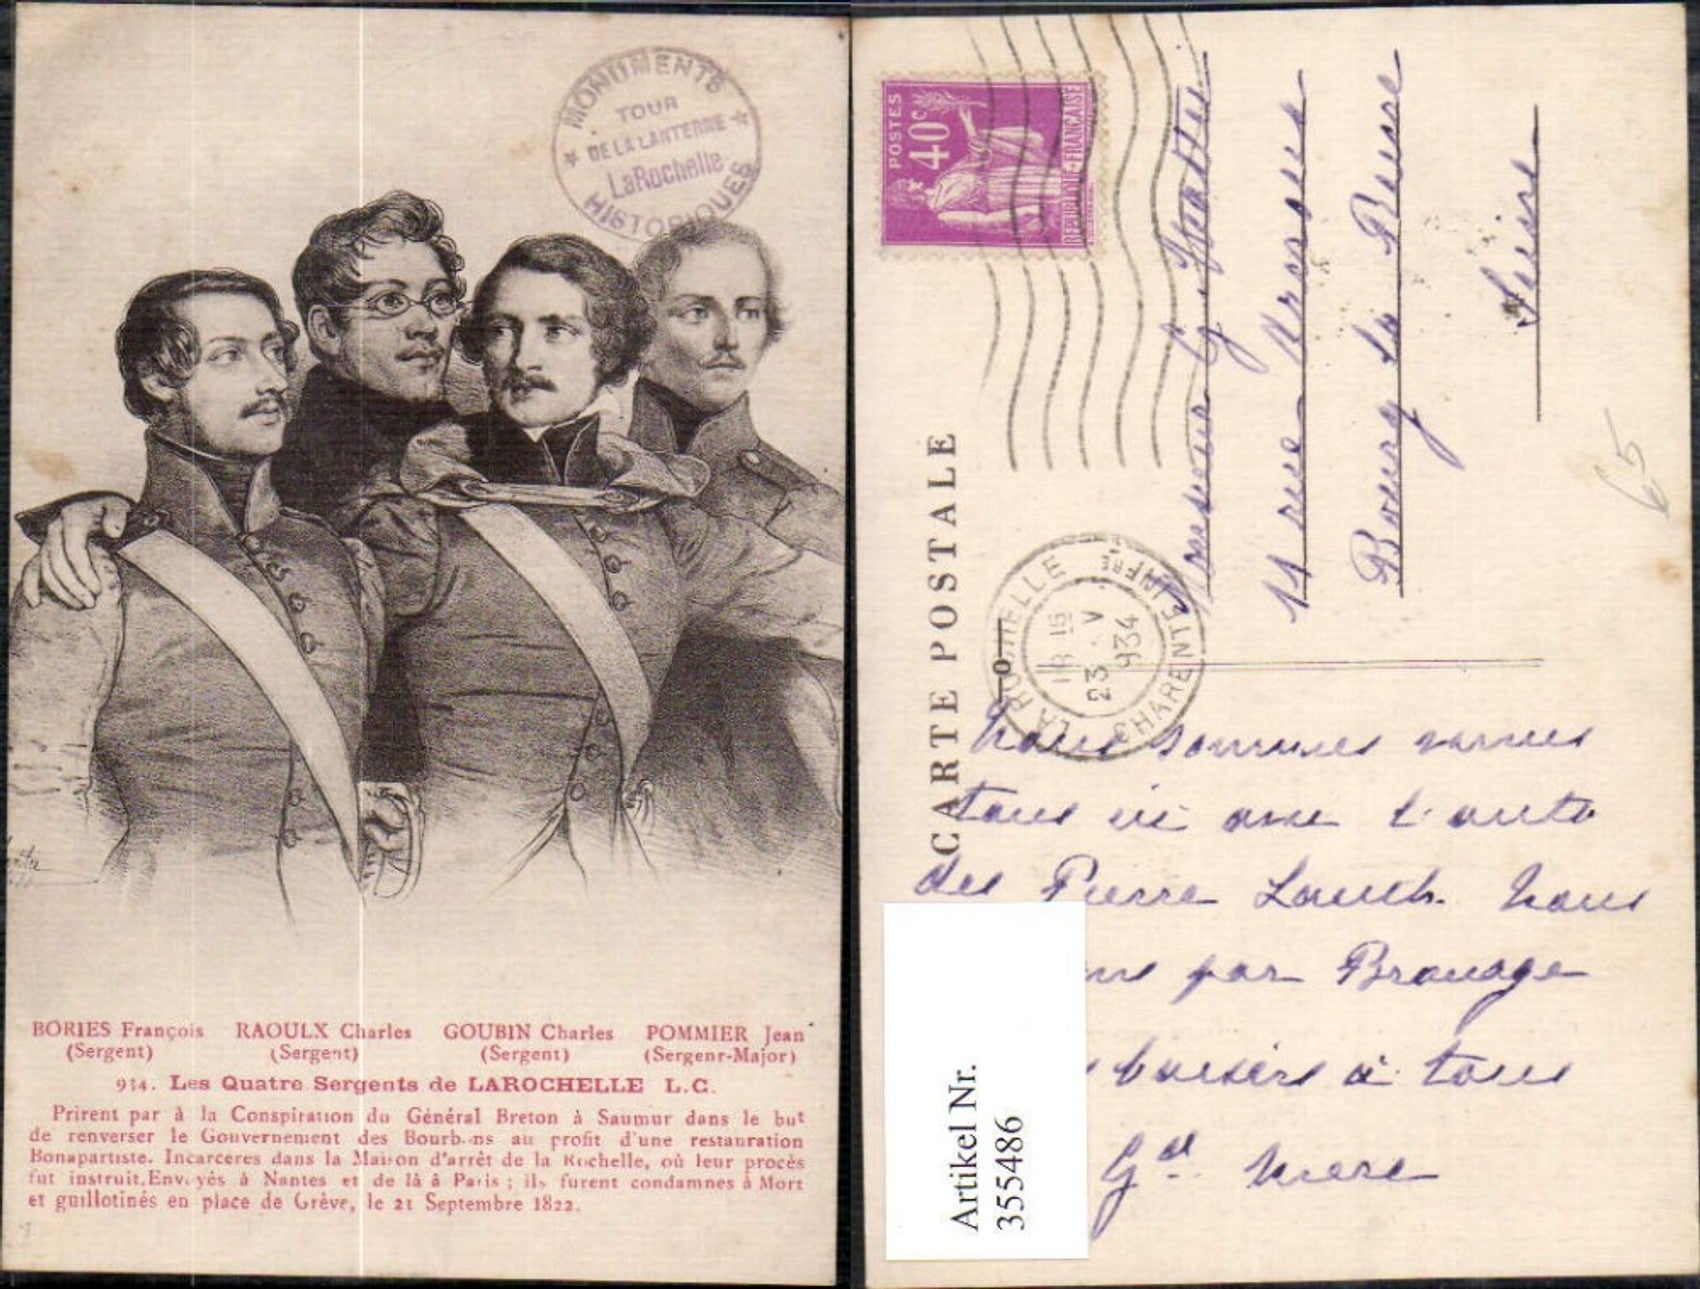 MONUMENTS
TOUR
DE LA LANTERNE
LaRochelle
HISTORIQUES
BORIES François RAOULX Charles GOUBIN Charles POMMIER Jean
(Sergent) (Sergent) (Sergent) (Sergenr-Major)
914. Les Quatre Sergents de LAROCHELLE L.C.
Prirent par à la Conspiration du Général Breton à Saumur dans le but
de renverser le Gouvernement des Bourbons au profit d'une restauration
Bonapartiste. Incarceres dans la Maison d'arrêt de la Rochelle, où leur procès
fut instruit. Envoyés à Nantes et de là à Paris ; ils furent condamnes à Mort
et guillotinés en place de Grève, le 21 Septembre 1822.
POSTES
40c
REPUBLIQUE-FRANÇAISE
CARTE POSTALE
LA ROCHELLE
18 15
23 V
934
CHARENTE INFRE
Monsieur G
11 rue
Bourg la Reine
Seine
65
Nous sommes venus
tous ici avec l'auto
des Pierre Nous
par Brouage
baisers à tous
Gd Mere
Artikel Nr.
355486